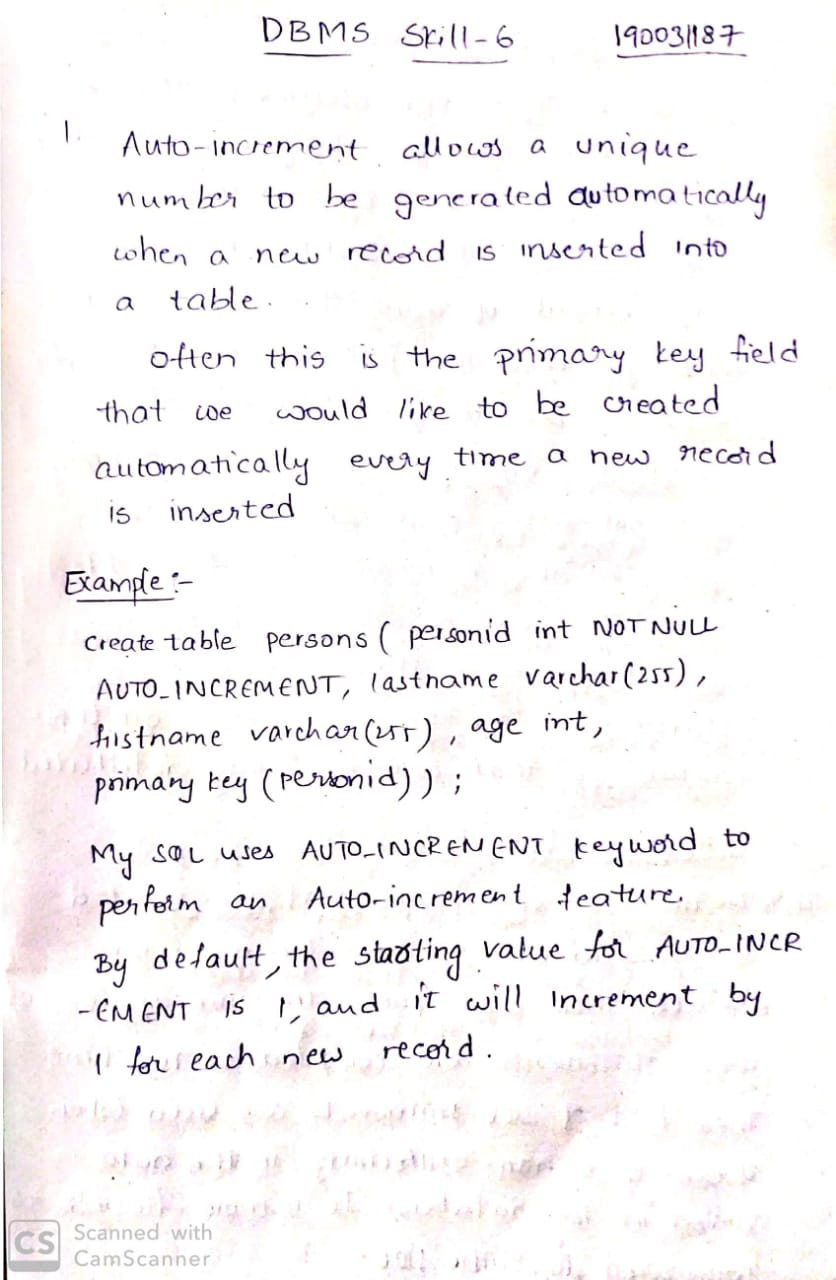 DBMS Skill-6 190031187
1. Auto-increment allows a unique
number to be generated automatically
when a new record is inserted into
a table.
often this is the primary key field
that we would like to be created
automatically every time a new record
is inserted
Example :-
Create table persons ( personid int NOT NULL
AUTO_INCREMENT, lastname varchar(255),
firstname varchar(255), age int,
primary key (personid) ) ;
My SQL uses AUTO_INCREMENT keyword to
perform an Auto-increment feature.
By default, the starting value for AUTO_INCR
-EMENT is 1, and it will increment by
1 for each new record.
CS Scanned with
CamScanner